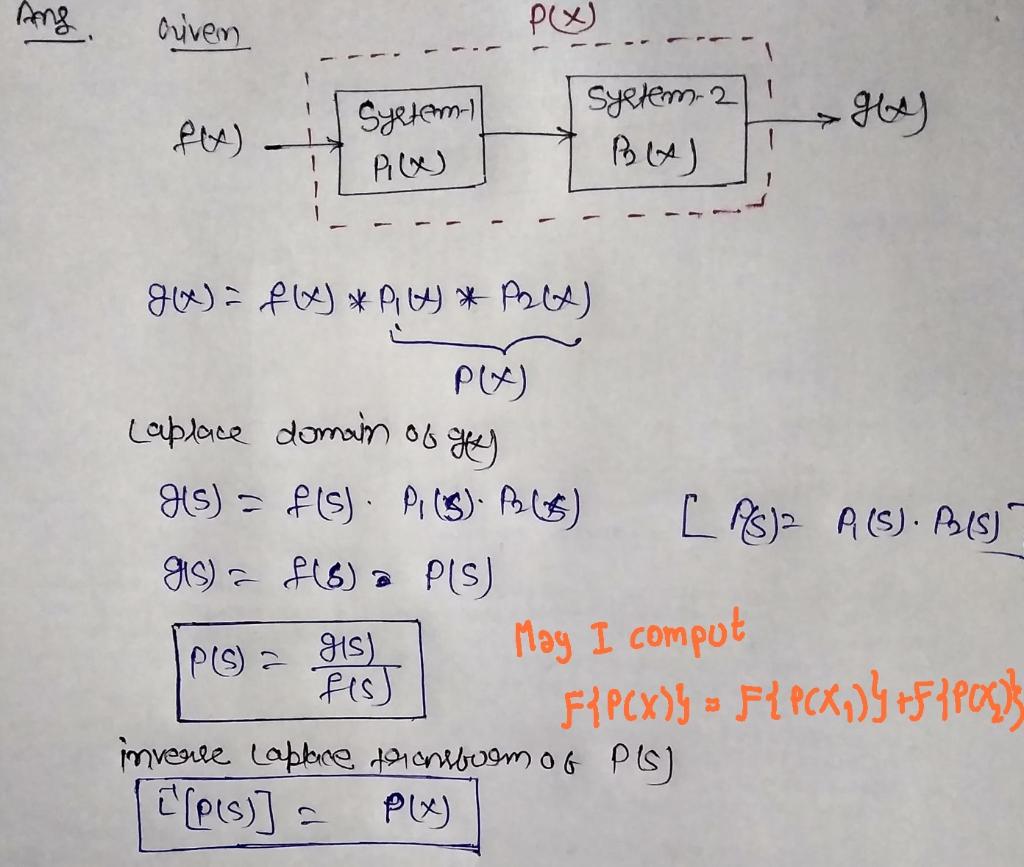 Ans. Given
P(x)
f(x) System-1 P1(x) System-2 P2(x) g(x)
g(x) = f(x) * P1(x) * P2(x)
P(x)
Laplace domain of g(x)
g(s) = f(s) . P1(s) . P2(s) [ P(s) = P1(s) . P2(s) ]
g(s) = f(s) . P(s)
P(s) = g(s) / f(s)
May I comput
F{P(x)} = F{P(X1)} + F{P(X2)}
inverse Laplace transform of P(s)
L⁻¹[P(s)] = P(x)